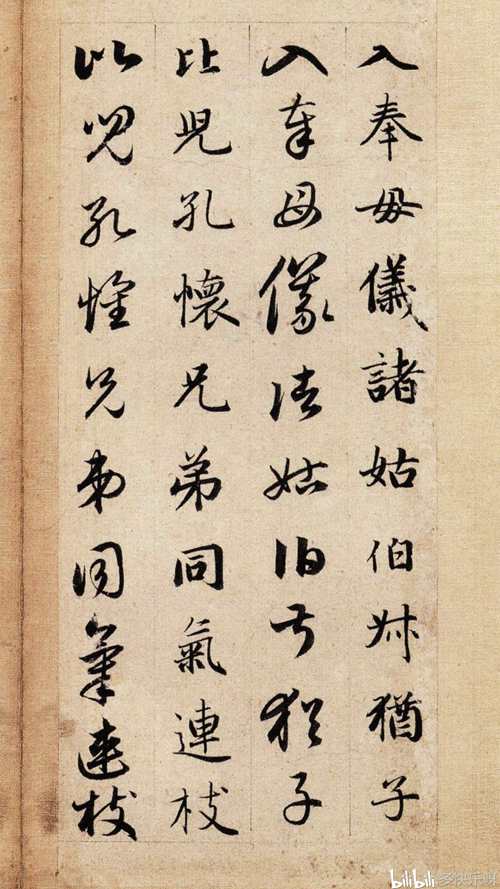 入奉母儀諸姑伯叔猶子
入奉母儀諸姑伯叔猶子
比兒孔懷兄弟同氣連枝
比兒孔懷兄弟同氣連枝
bilibili